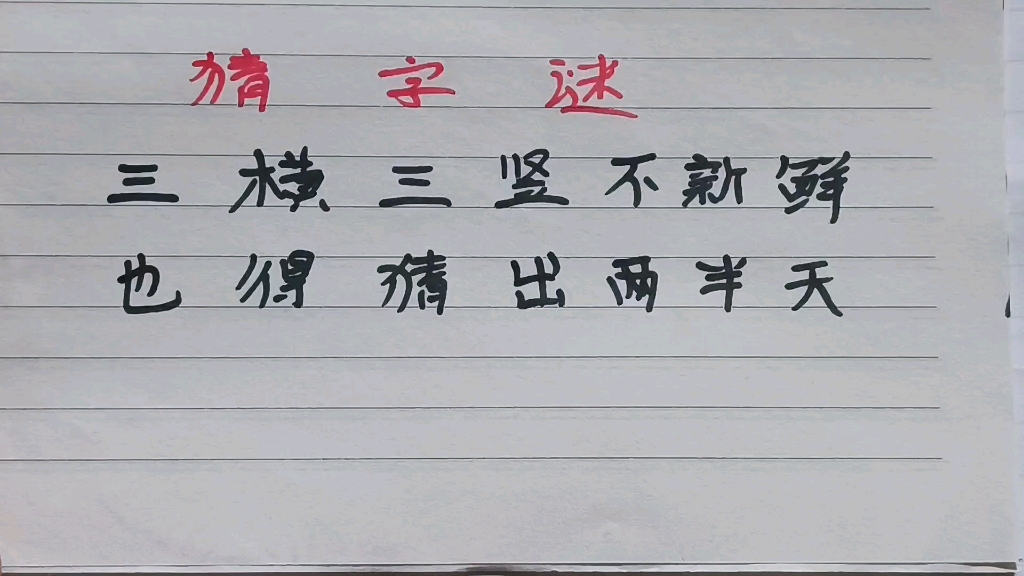 猜字谜
三横三竖不新鲜
也得猜出两半天